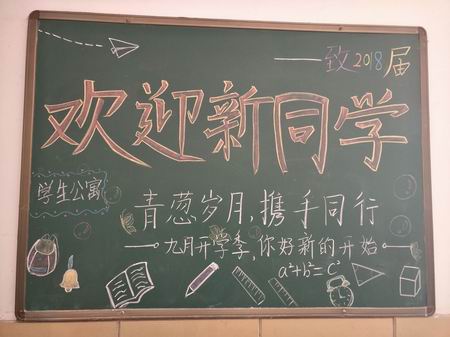 ——致2018届
欢迎新同学
学生公寓
青葱岁月,携手同行
九月开学季,你好新的开始
a²+b²=c²